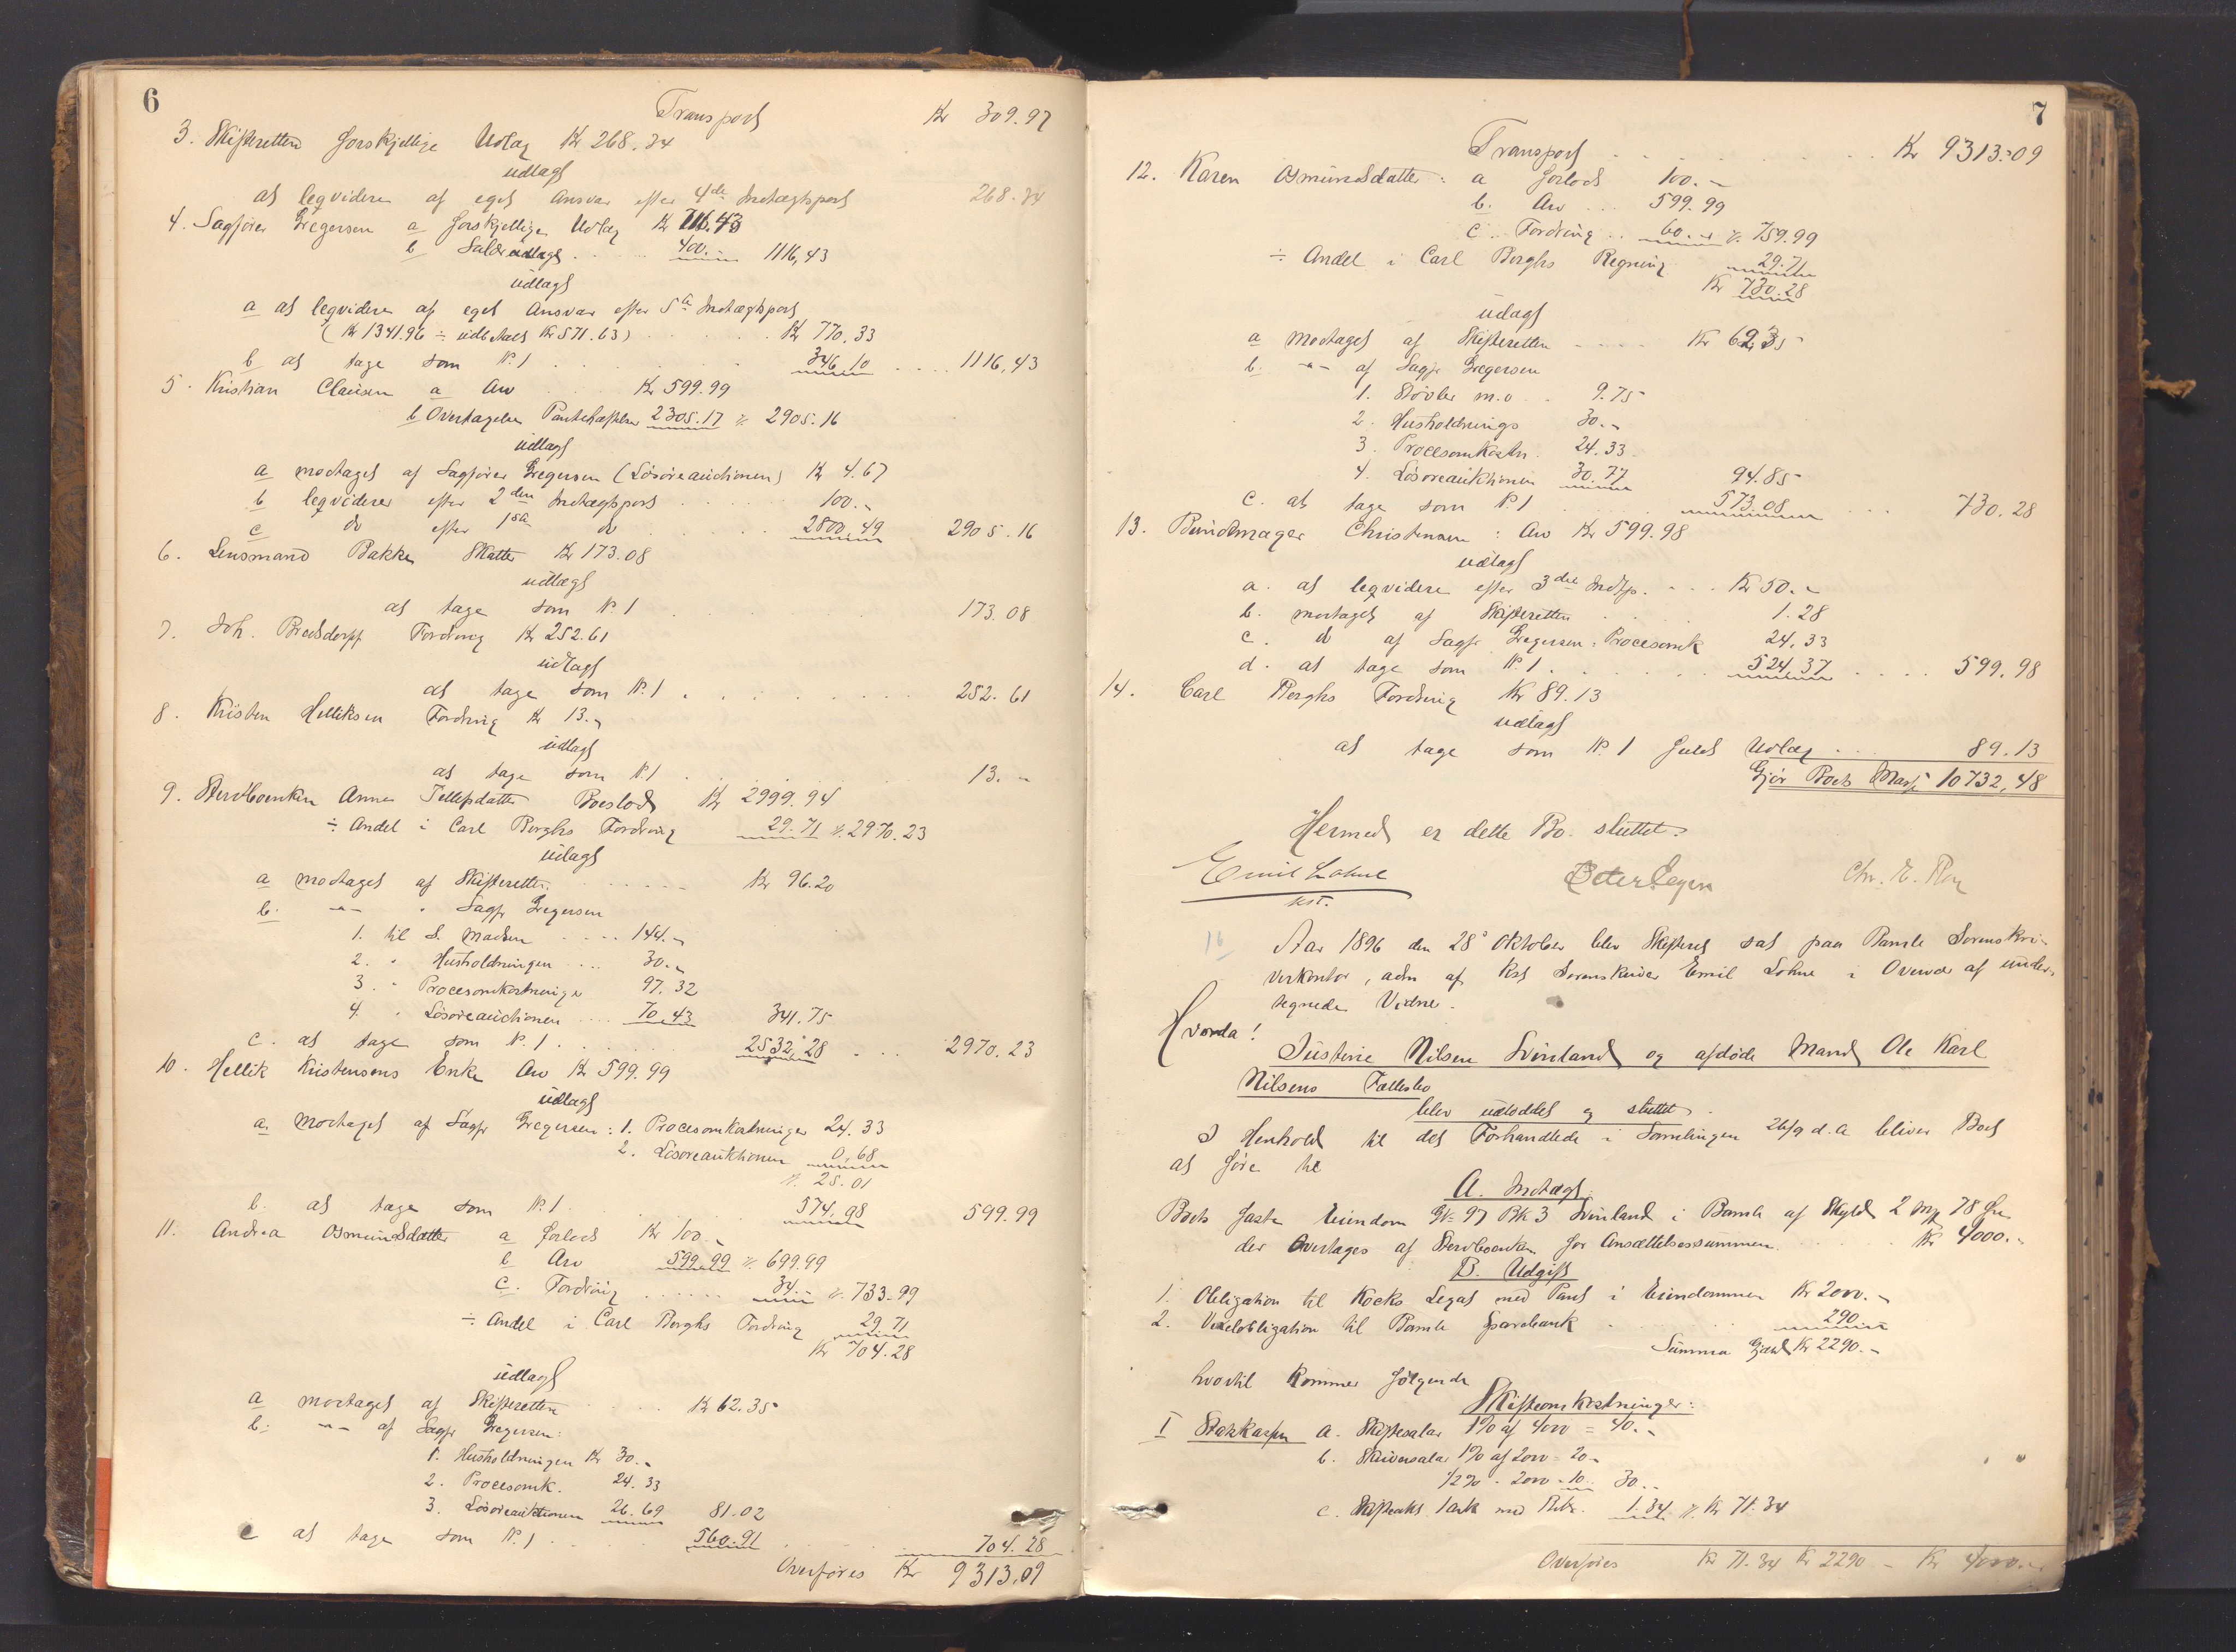 6
Transport Kr 309.97
3. Skifteretten forskjellige Udlæg Kr 268.34
udlagt
at leqvidere af eget Ansvar efter 4de Indtægtspost 268.34
4. Sagfører Gregersen a forskjellige Udlæg Kr 716.43
b Salær udlagt 400.- 1116,43
udlagt
a at leqvidere af eget Ansvar efter 5te Indtægtspost
(Kr 1341.96 ÷ udbetalt Kr 571.63) Kr 770.33
b at tage som No 1 346.10 1116,43
5. Kristian Clausen a Arv Kr 599.99
b Overtagelse Pantehæftelser 2305.17 2905.16
udlagt
a modtaget af Sagfører Gregersen (Løsøreauctionen) Kr 4.67
b leqviderer efter 2den Indtægtspost 100.-
c do efter 1ste do 2800.49 2905.16
6. Lensmand Bakke Skatter Kr 173.08
udlægt
at tage som No 1 173.08
7. Joh. Bredsdorff Fordring Kr 252.61
udlagt
at tage som No 1 252.61
8. Kristen Helliksen Fordring Kr 13.-
udlagt
at tage som No 1 13.-
9. Stervboenken Anne Tellefsdatter Boeslod Kr 2999.94
÷ Andel i Carl Berghs Fordring 29.71 2970.23
udlagt
a modtaget af Skifteretten Kr 96.20
b. -"- " Sagfr Gregersen
1. til S. Madsen 144.-
2. " Husholdningen 30.-
3. " Procesomkostninger 97.32
4. " Løsøreauctionen 70.43 341.75
c. at tage som No 1 2532.28 2970.23
10. Hellik Kristensens Enke Arv Kr 599.99
udlagt
a. Modtaget af Sagfr Gregersen: 1. Procesomkostninger 24.33
2. Løsøreauktionen 0.68
25.01
b. at tage som No 1 574.98 599.99
11. Andrea Osmundsdatter a forlods Kr 100.-
b Arv 599.99 699.99
c. Fordring 34.- 733.99
÷ Andel i Carl Berghs Fordring 29.71
Kr 704.28
udlagt
a modtaget af Skifteretten Kr 62.35
b. -"- af Sagfr Gregersen:
1. Husholdningen Kr 30.-
2. Procesomk. 24.33
3. Løsøreauktionen 26.69 81.02
c at tage som No 1 560.91 704.28
Overføres Kr 9313.09
7
Transport Kr 9313.09
12. Karen Osmundsdatter: a forlods 100.-
b. Arv 599.99
c. Fordring 60.- 759.99
÷ Andel i Carl Berghs Regning 29.71
Kr 730.28
udlagt
a Modtaget af Skifteretten Kr 62.35
b. -"- af Sagfr Gregersen
1. Støvler m.v. 9.75
2. Husholdnings 30.-
3. Procesomkostn. 24.33
4. Løsøreauktionen 30.77 94.85
c. at tage som No 1 573.08 730.28
13. Buntmager Christensen: Arv Kr 599.98
udlagt
a. at leqvidere efter 3die Indtp. Kr 50.-
b. modtaget af Skifteretten 1.28
c. do af Sagfr Gregersen: Procesomk 24.33
d. at tage som No 1 524.37 599.98
14. Carl Berghs Fordring Kr 89.13
udlagt
at tage som No 1 fuldt Udlæg 89.13
Gjør Boets Masse 10732,48
Hermed er dette Bo sluttet.
Emil Lohne
kst.
Aar 1896 den 28de Oktober blev Skifteret sat paa Bamle Sorenskri-
verkontor, adm af kst Sorenskriver Emil Lohne i Overvær af under-
tegnede Vidne.
Hvorda!
Justine Nilsen Svinland og afdøde Mand Ole Karl
Nilsens Fællesbo
blev udloddet og sluttet.
I Henhold til det Forhandlede i Samlingen 26/9 d.A. bliver Boet
at føre til
A. Indtægt.
Boets faste Eiendom GNo 97 BNo 3 Svinland i Bamle af Skyld 2 Mk 78 Øre
der Overtages af Stervboenken for Ansættelsessummen Kr 4000.-
B. Udgift
1. Obligation til Kocks Legat med Pant i Eiendommen Kr 2000.-
2. Vexelobligation til Bamle Sparebank 290.-
Summa Gjæld Kr 2290.-
hvortil kommer følgende
Skifteomkostninger:
I Statskassen a. Skiftesalær 1% af 4000 = 40.-
b. Skriversalær 1% af 2000 = 20.-
1/2% - 2000 = 10.- 30.-
c. Skifteakt 1 ark med 1.34 Kr 71.34
Overføres Kr 71.34 Kr 2290.- Kr 4000.-